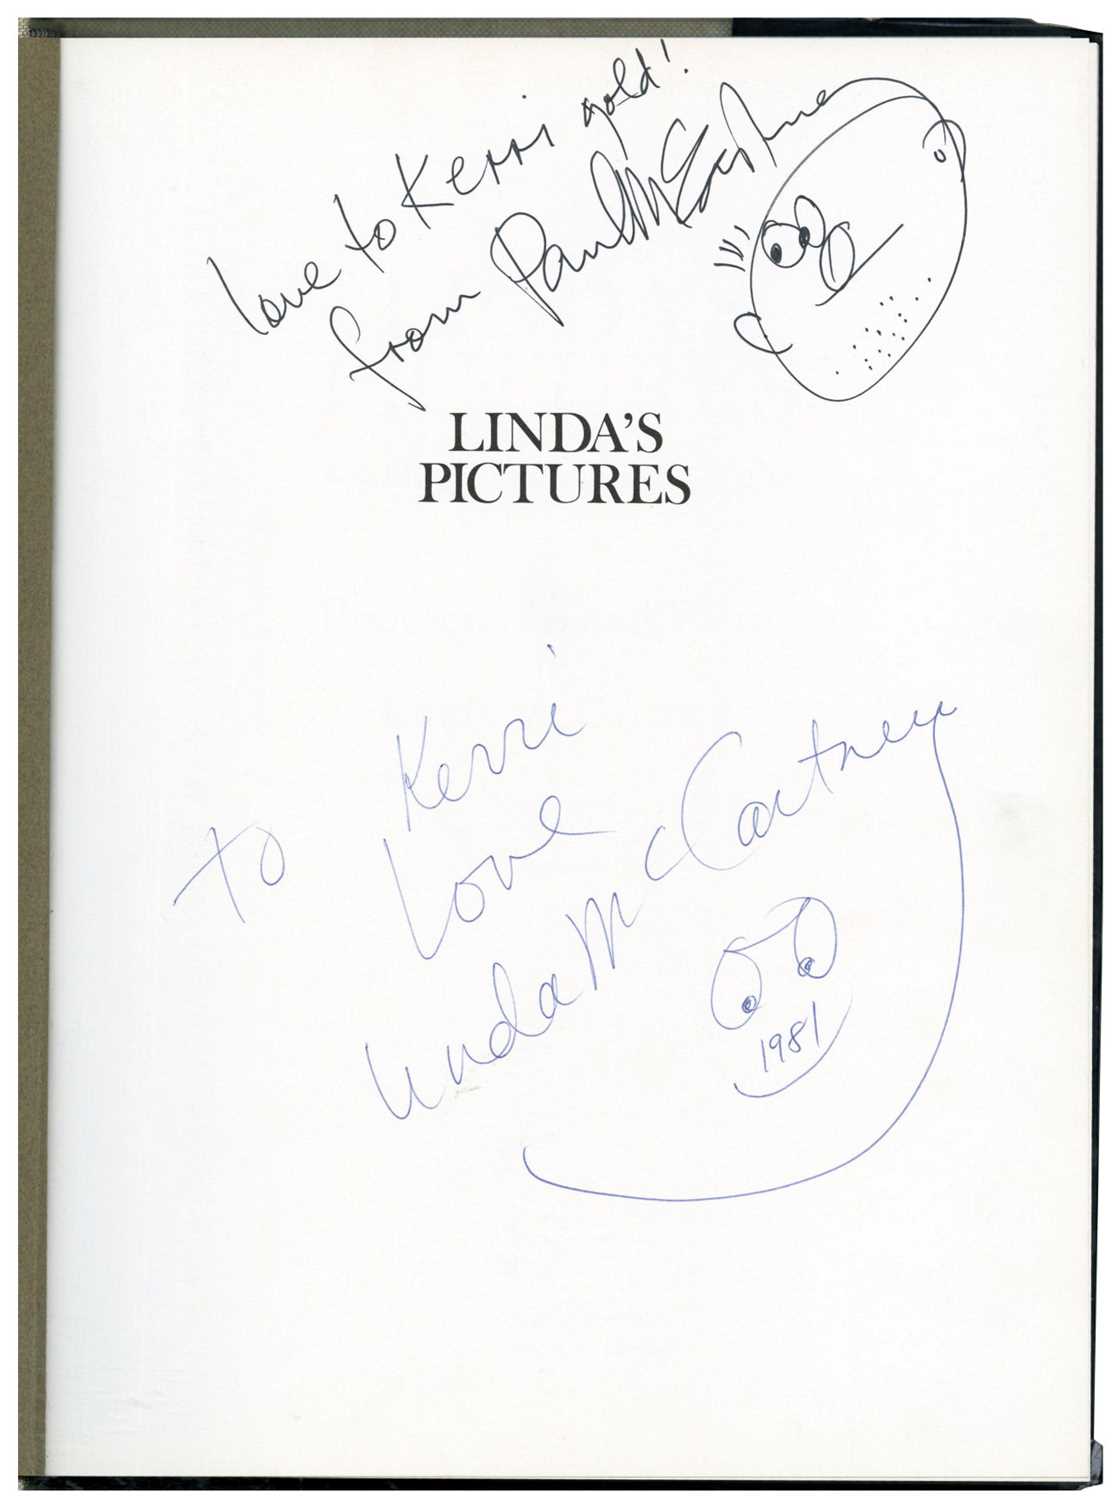 love to Kerri gold!
from Paul McCartney
LINDA'S
PICTURES
To Kerri
Love
Linda McCartney
1981